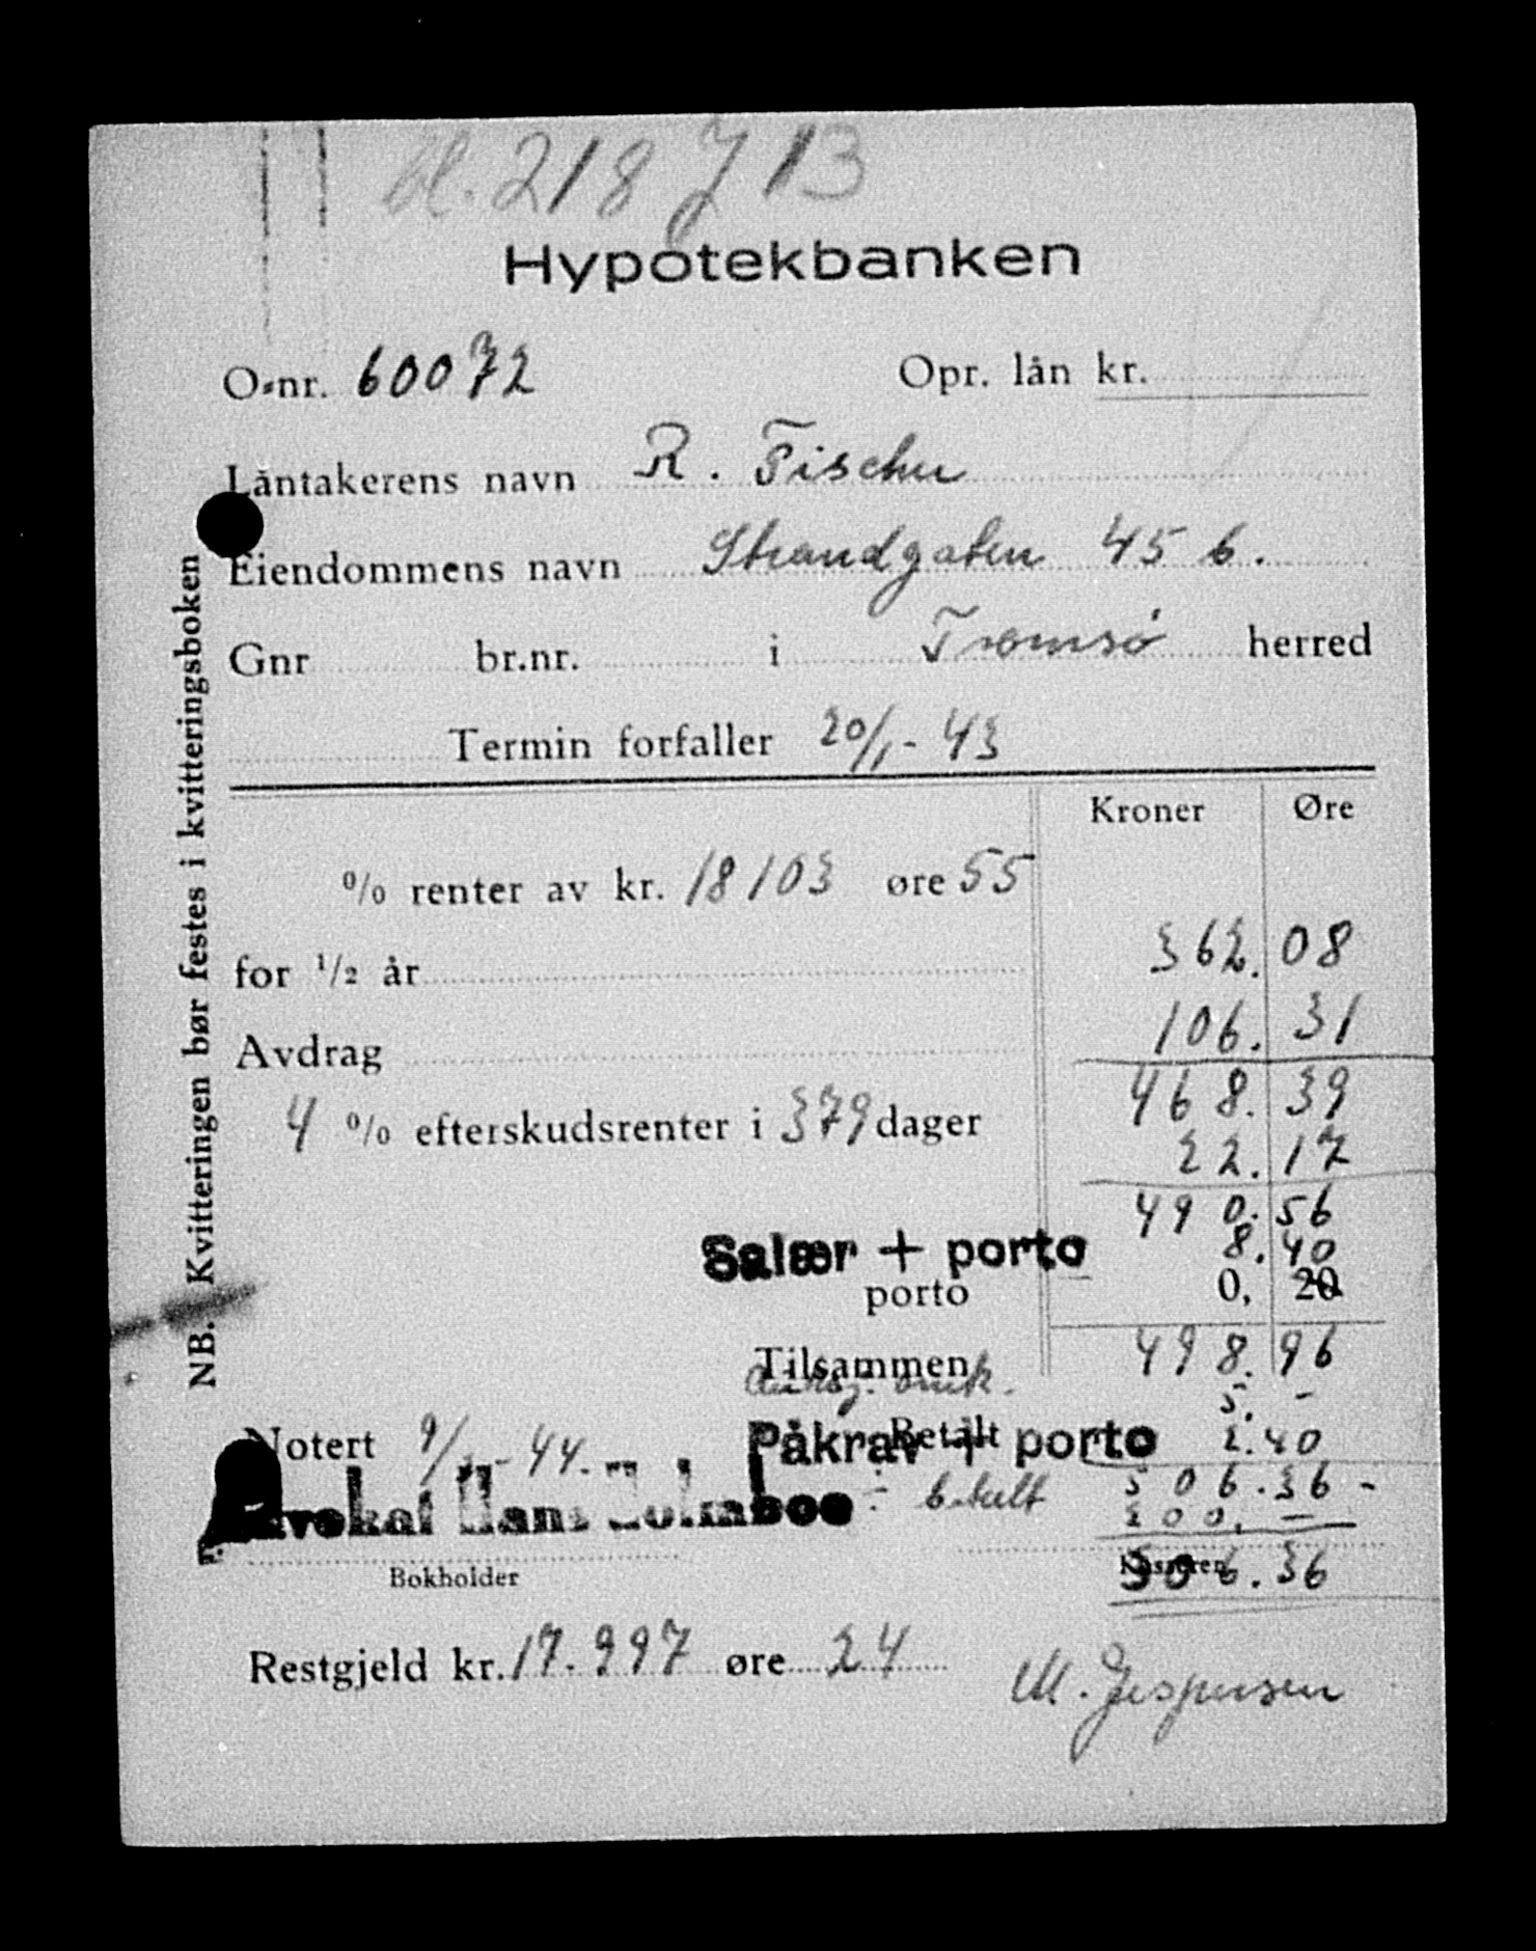 bl. 218 J 13
Hypotekbanken
O-nr. 60072 Opr. lån kr.
Låntakerens navn R. Fischer
Eiendommens navn Strandgaten 45 b.
Gnr br.nr. i Tromsø herred
Termin forfaller 20/1 - 43
Kroner Øre
% renter av kr. 18103 øre 55
for 1/2 år 362. 08
Avdrag 106. 31
468. 39
4 % efterskudsrenter i 379 dager 22. 17
490. 56
Salær + porto 8. 40
porto 0, 20
Tilsammen 498. 96
5. -
Notert 9/ - 44. Betalt
Påkrav + porto 2. 40
506. 36 -
Advokat Hans
Bokholder Kassereren
306. 36
Restgjeld kr. 17.997 øre 24
M. Jespersen
NB. Kvitteringen bør festes i kvitteringsboken